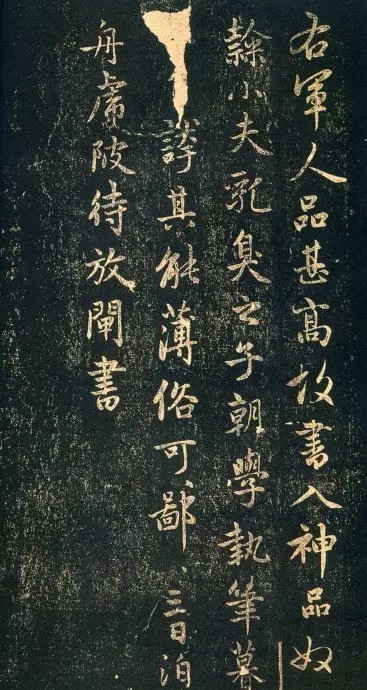 右軍人品甚高故書入神品奴
隸小夫乳臭之子朝學執筆暮
誇其能薄俗可鄙三日泊
舟虎陂待放閘書